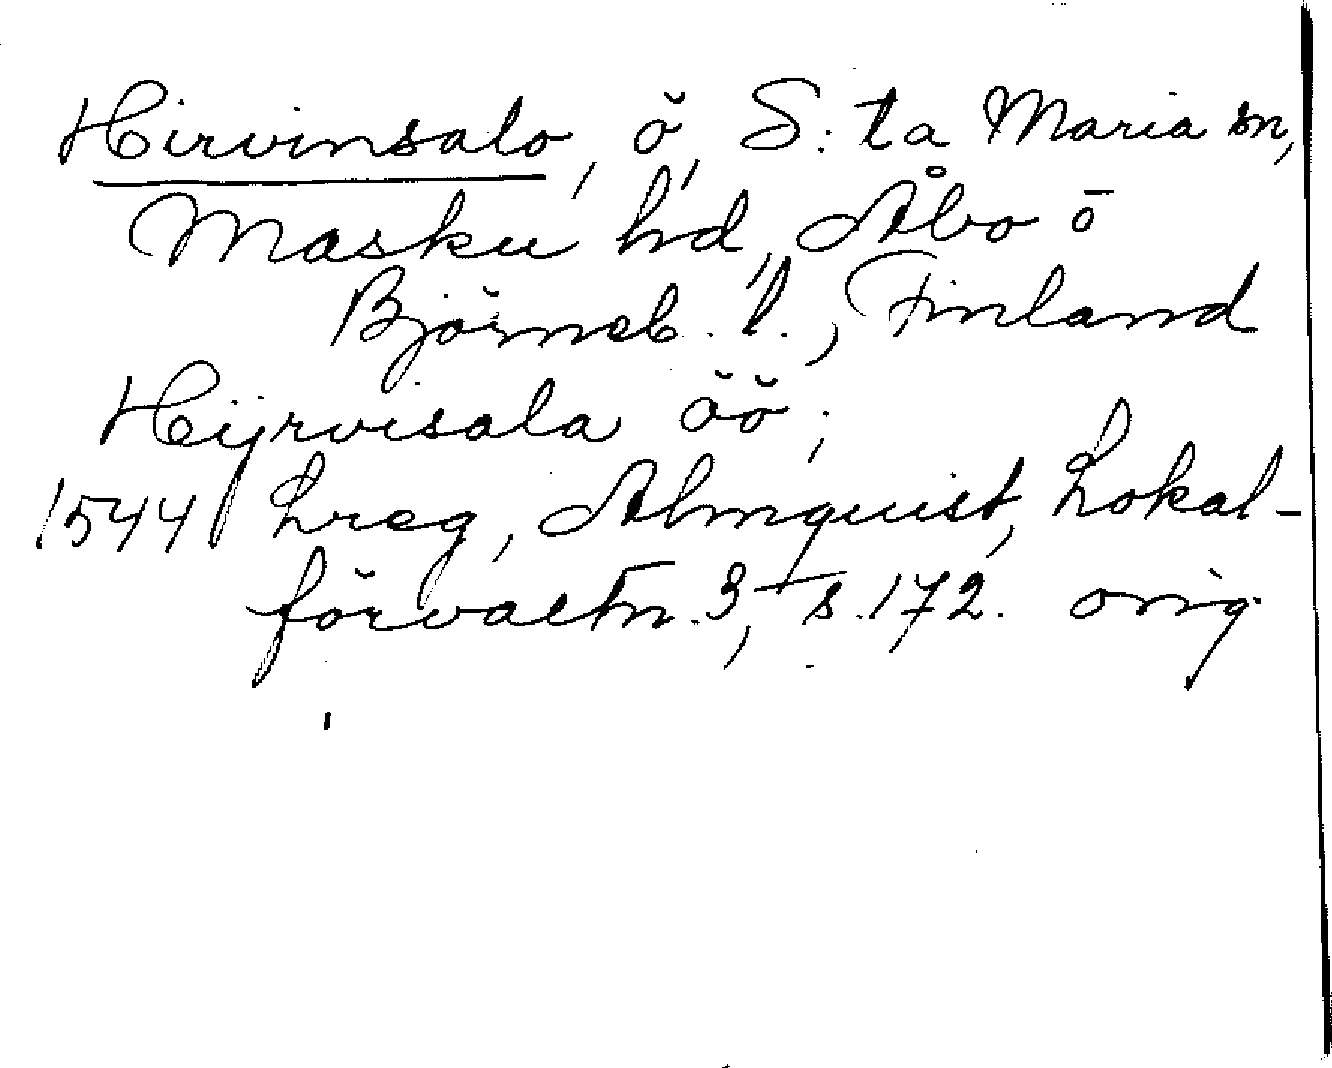 Hirvinsalo, ö, S:ta Maria sn,
Masku hd, Åbo o
Björneb. l., Finland
Hijrvisala öö;
1544 Lreg, Almquist, Lokal-
förvaltn. 3, s. 172. orig